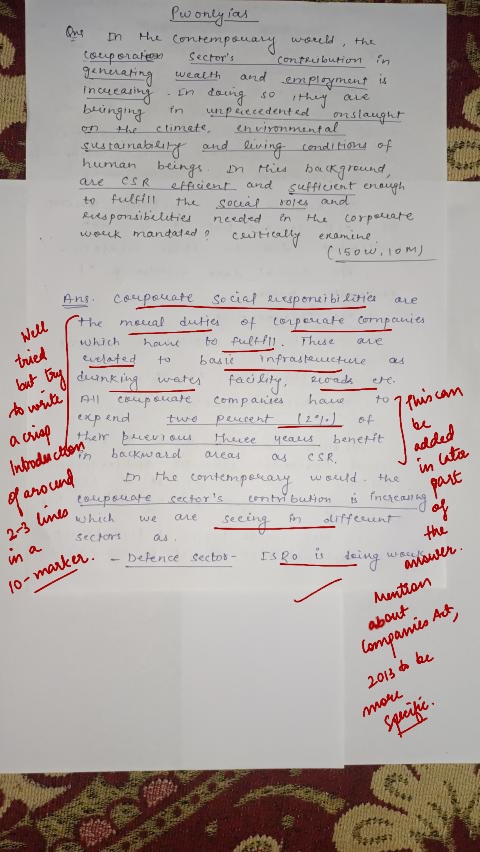 Pwonlyias
Qns In the contemporary would, the
couporation sector's contribution in
generating wealth and employment is
increasing. In doing so, they are
bringing in unprecedented onslaught
on the climate, environmental
sustainability and living conditions of
human beings. In this background,
are CSR efficient and sufficient enough
to fulfill the social roles and
responsibilities needed in the corporate
work mandated? critically examine
(150W, 10M)
Ans. Corporate Social responsibilities are
the moral duties of corporate companies
which have to fulfill. These are
related to basic infrastructure as
drinking water facility, roads etc.
All corporate companies have to
expend two percent (2%) of
their previous three years benefit
in backward areas as CSR.
In the contemporary would. the
corporate sector's contribution is increasing
which we are seeing in different
sectors as.
- Defence sector- ISRO is doing work
Well
tried
but try
to write
a crisp
Introduction
of around
2-3 lines
in a
10-marker.
This can
be
added
in later
part
of
the
answer.
Mention
about
Companies Act,
2013 to be
more
specific.